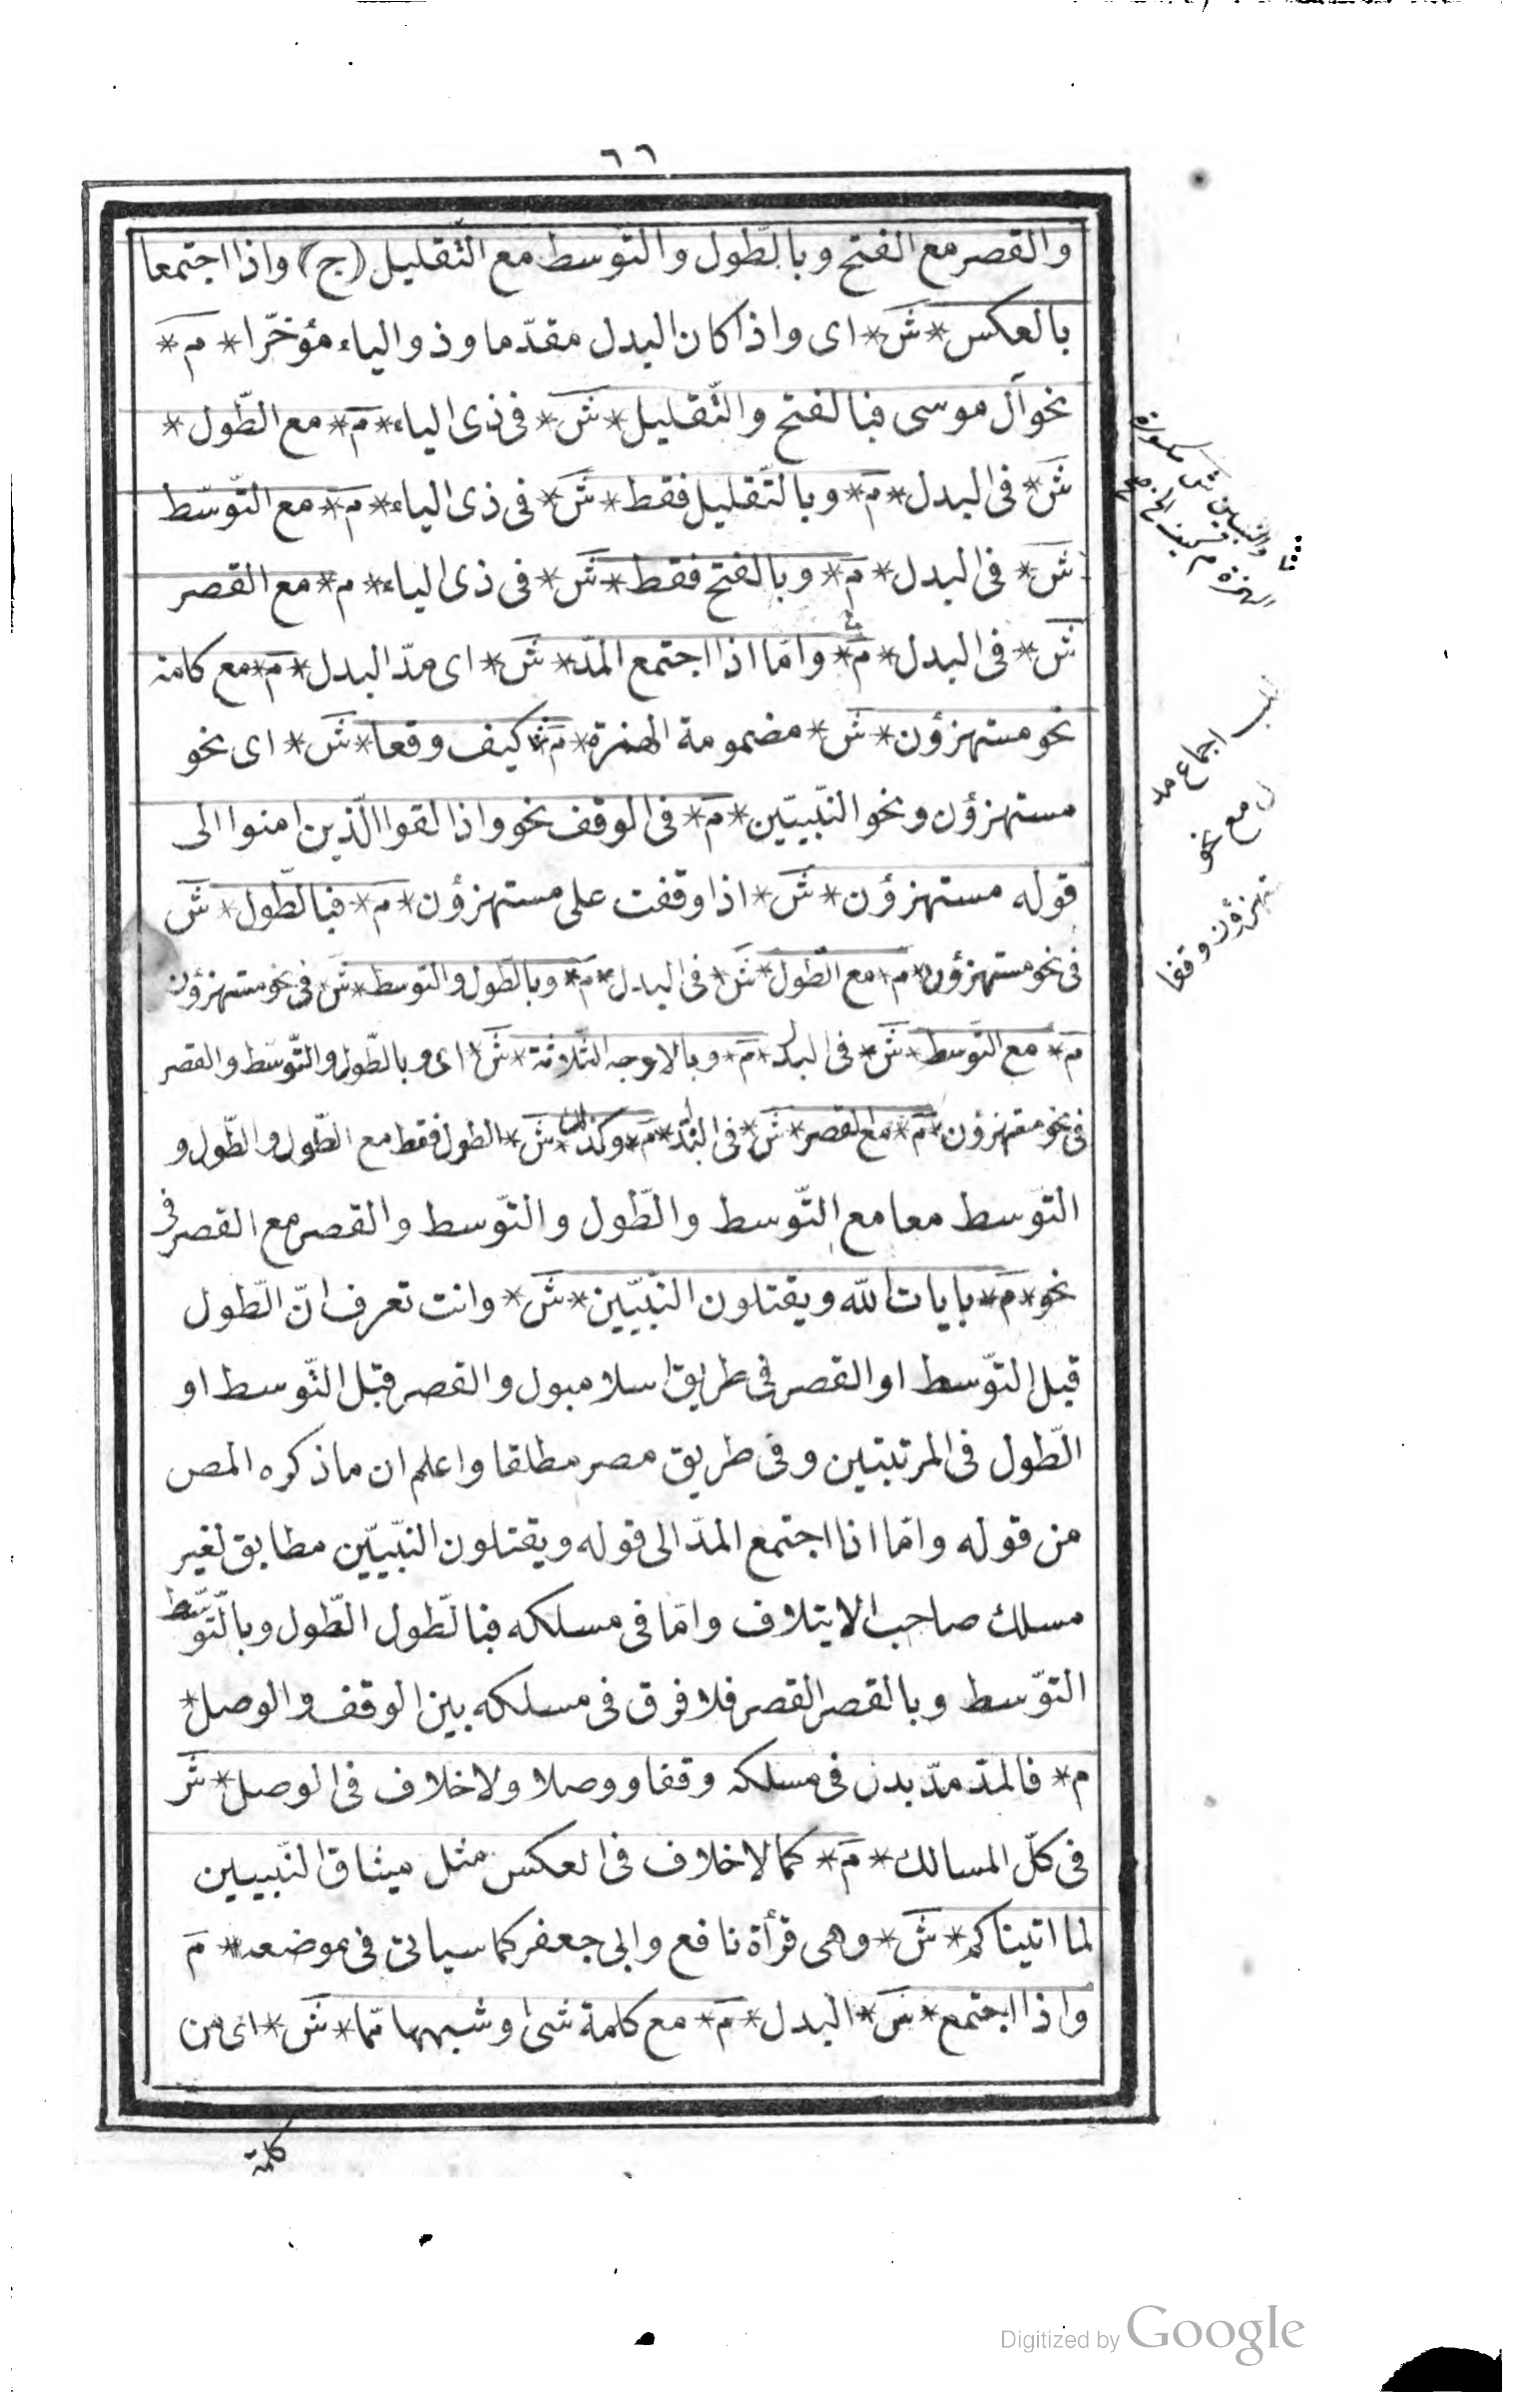 ٦٦
والقصر مع الفتح وبالطّول والتوسط مع التّقليل (ج) واذا اجتمعا
بالعكس * ش * اى واذا كان البدل مقدّما وذو الياء مؤخّرا * م *
نحو آل موسى فبالفتح والتّقليل * ش * فى ذى الياء * م * مع الطّول *
ش * فى البدل * م * وبالتّقليل فقط * ش * فى ذى الياء * م * مع التّوسّط
ش * فى البدل * م * وبالفتح فقط * ش * فى ذى الياء * م * مع القصر
ش * فى البدل * م * وامّا اذا اجتمع المدّ * ش * اى مدّ البدل * م * مع كلمة
نحو مستهزؤن * ش * مضمومة الهمزة * م * كيف وقعا * ش * اى نحو
مستهزؤن ونحو النّبيّين * م * فى الوقف نحو واذا لقوا الّذين امنوا الى
قوله مستهزؤن * ش * اذا وقفت على مستهزؤن * م * فبالطّول * ش
فى نحو مستهزؤن * م * مع الطّول * ش * فى البدل * م * وبالطّول والتوسط * ش * فى نحو مستهزؤن
م * مع التّوسط * ش * فى البدل * م * وبالاوجه الثّلاثة * ش * اى وبالطّول والتّوسّط والقصر
فى نحو مستهزؤن * م * مع القصر * ش * فى البدل * م * وكذلك * ش * الطول فقط مع الطّول والطّول و
التّوسط معا مع التّوسط والطّول والتّوسط والقصر مع القصر فى
نحو * م * بايات الله ويقتلون النّبيّين * ش * وانت تعرف انّ الطّول
قبل التّوسّط او القصر فى طريق اسلامبول والقصر قبل التّوسط او
الطّول فى المرتبتين وفى طريق مصر مطلقا واعلم ان ماذكره المص
من قوله وامّا اذا اجتمع المدّ الى قوله ويقتلون النّبيّين مطابق لغير
مسلك صاحب الايتلاف وامّا فى مسلكه فبالطّول الطّول وبالتّوسّط
التوّسط وبالقصر القصر فلا فرق فى مسلكه بين الوقف والوصل *
م * فالمدّ مدّ بدل فى مسلكه وقفا ووصلا ولا خلاف فى الوصل * ش
فى كلّ المسالك * م * كما لا خلاف فى العكس مثل ميثاق النّبيين
لما اتيناكم * ش * وهى قرأة نافع وابى جعفر كما سيأتى فى موضعه * م
واذا اجتمع * ش * البدل * م * مع كلمة شئ وشبهها ممّا * ش * اى من
كلمة
اجماع مد
مع نحو
تهزؤن وقفا
Digitized by Google